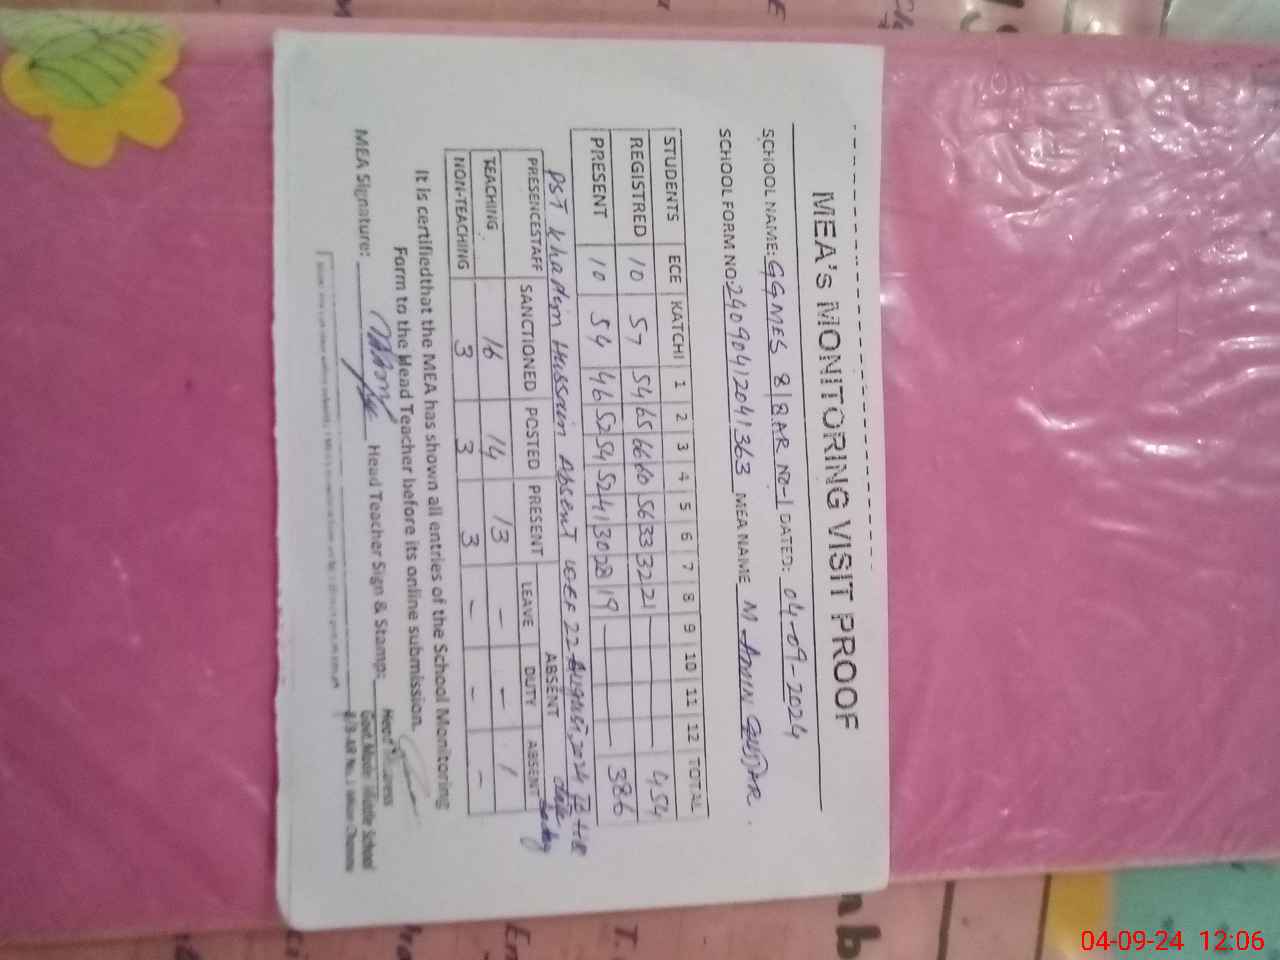 MEA'S MONITORING VISIT PROOF
SCHOOL NAME: GGMES 8/8AR No-1 DATED: 04-09-2024
SCHOOL FORM NO: 24090412041363 MEA NAME M AMIN GUJJAR.
STUDENTS ECE KATCHI 1 2 3 4 5 6 7 8 9 10 11 12 TOTAL
REGISTRED 10 57 54 65 66 60 56 33 32 21 — — 454
PRESENT 10 54 46 52 54 52 41 30 28 19 — — 386
PST Khadim Hussain Absent WEF 22 August, 2024 till
date today
PRESENCESTAFF SANCTIONED POSTED PRESENT ABSENT
LEAVE DUTY ABSENT
TEACHING 16 14 13 - - 1
NON-TEACHING 3 3 3 - - -
It is certifiedthat the MEA has shown all entries of the School Monitoring
Form to the Head Teacher before its online submission.
MEA Signature: Head Teacher Sign & Stamp:
Head
Govt. Middle School
8/8-AR No.1 Mian Channu
04-09-24 12:06